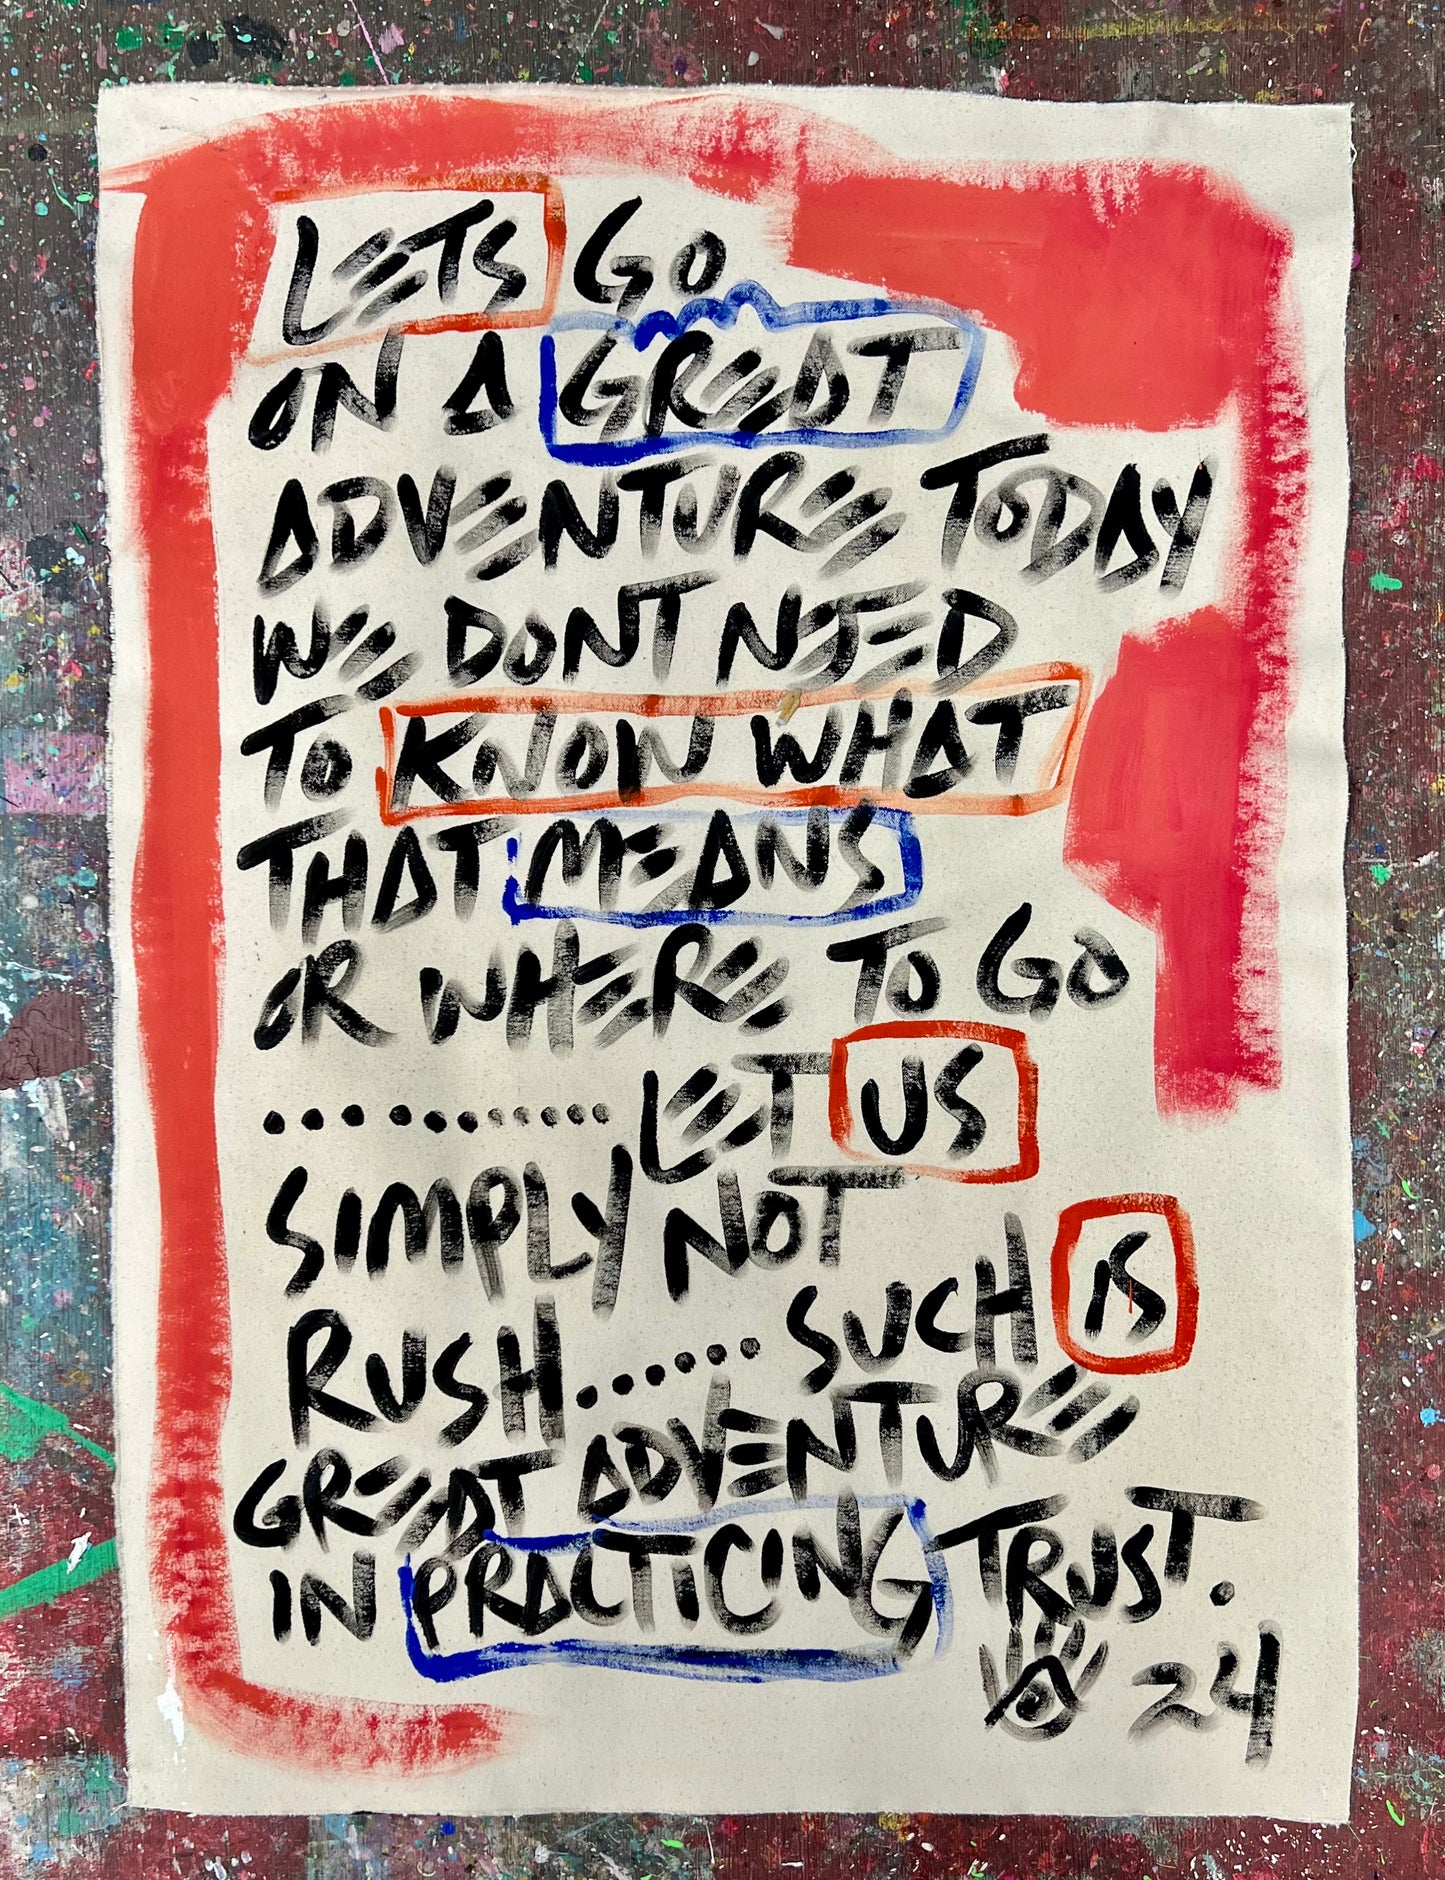 LETS GO
ON A GREAT
ADVENTURE TODAY
WE DONT NEED
TO KNOW WHAT
THAT MEANS
OR WHERE TO GO
............. LET US
SIMPLY NOT
RUSH...... SUCH IS
GREAT ADVENTURE
IN PRACTICING TRUST.
24